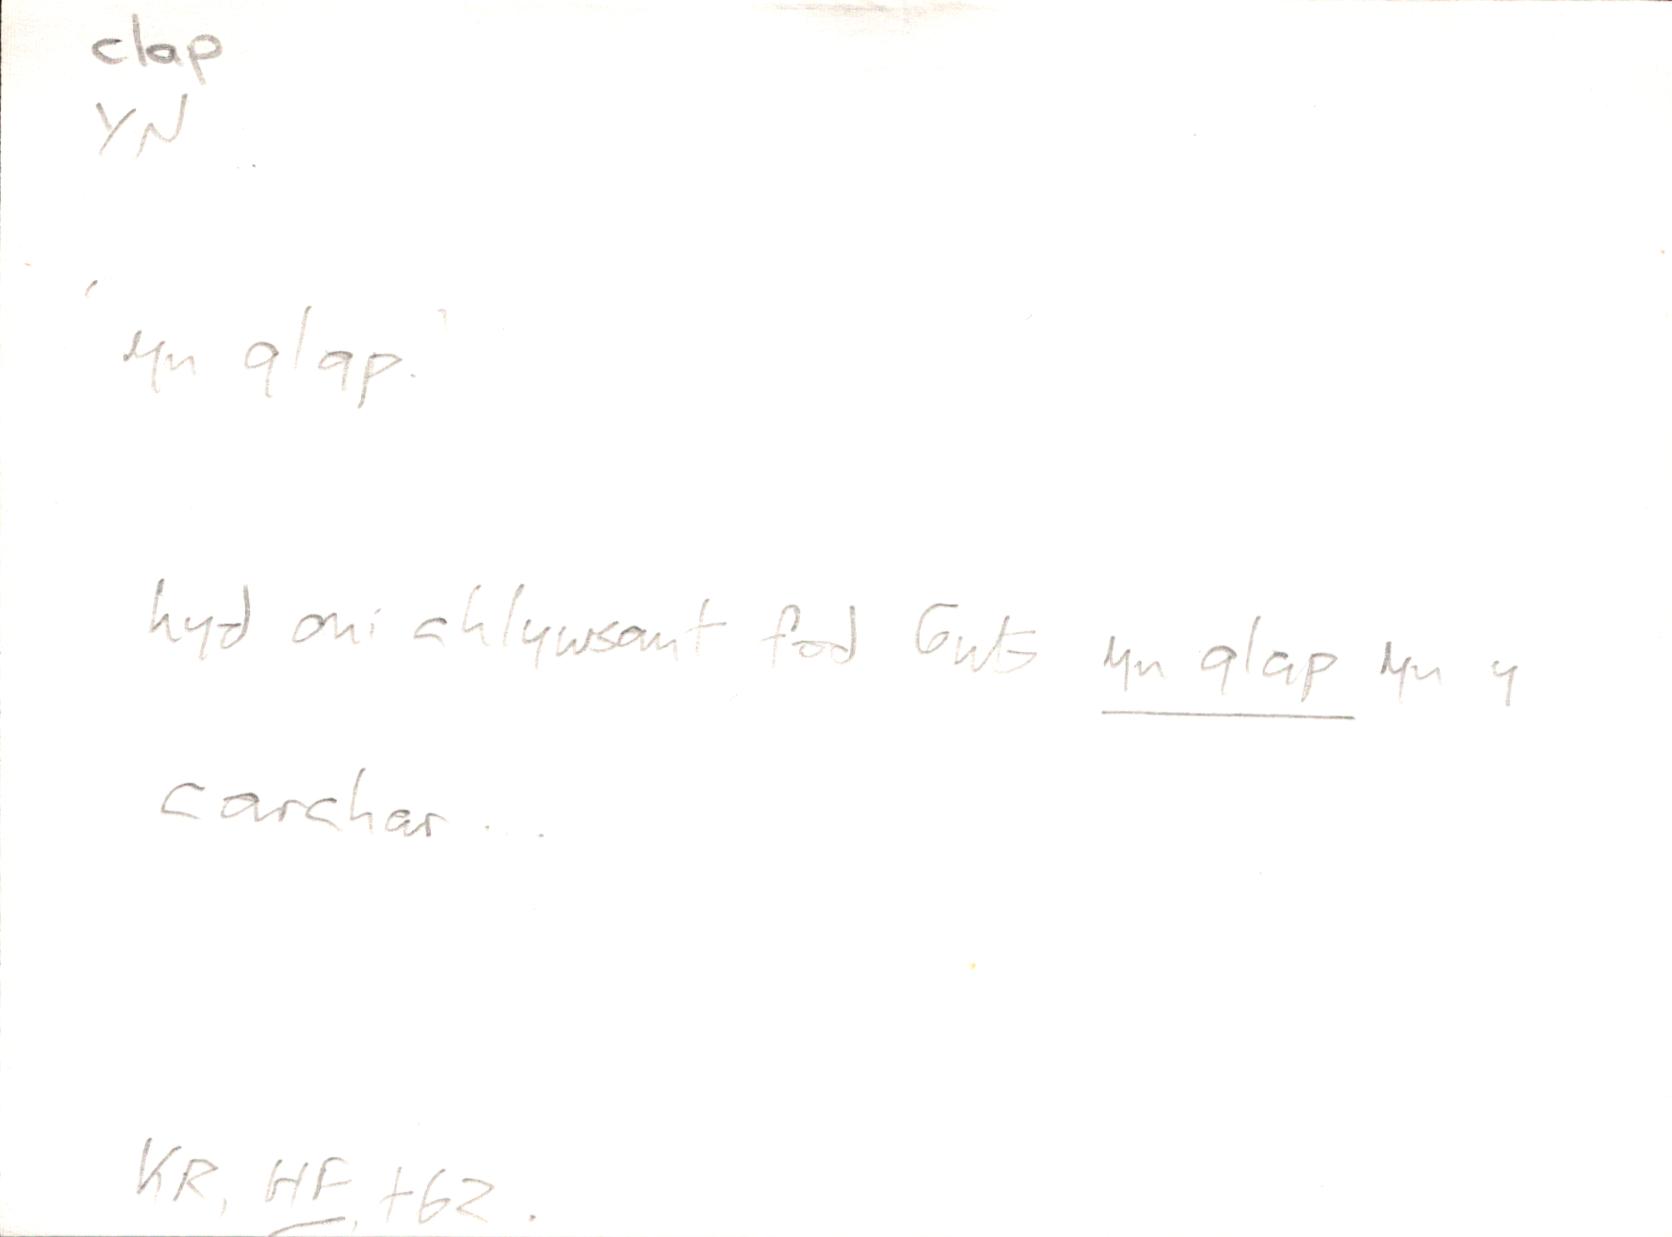 clap
YN
'yn glap.'
hyd oni chlywsant fod Guto yn glap yn y
carchar...
KR, HF, t62.